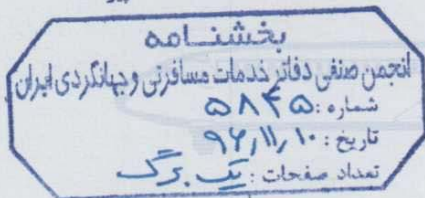 بخشنامه
انجمن صنفی دفاتر خدمات مسافرتی و جهانگردی ایران
شماره: ۵۸۴۵
تاریخ: ۹۶٫۱۱٫۱۰
تعداد صفحات: یک برگ